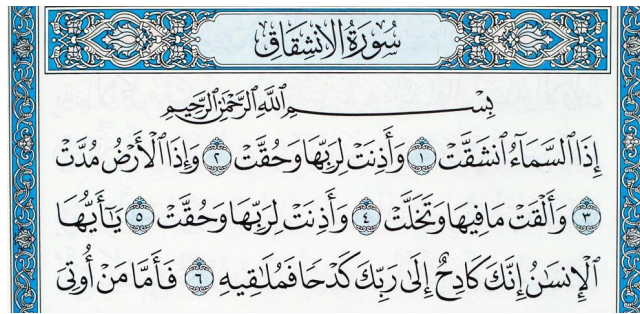 سُورَةُ الانشِقَاقِ
بِسْمِ ٱللَّهِ ٱلرَّحْمَٰنِ ٱلرَّحِيمِ
إِذَا ٱلسَّمَآءُ ٱنشَقَّتْ ١ وَأَذِنَتْ لِرَبِّهَا وَحُقَّتْ ٢ وَإِذَا ٱلْأَرْضُ مُدَّتْ
٣ وَأَلْقَتْ مَا فِيهَا وَتَخَلَّتْ ٤ وَأَذِنَتْ لِرَبِّهَا وَحُقَّتْ ٥ يَٰٓأَيُّهَا
ٱلْإِنسَٰنُ إِنَّكَ كَادِحٌ إِلَىٰ رَبِّكَ كَدْحًا فَمُلَٰقِيهِ ٦ فَأَمَّا مَنْ أُوتِىَ